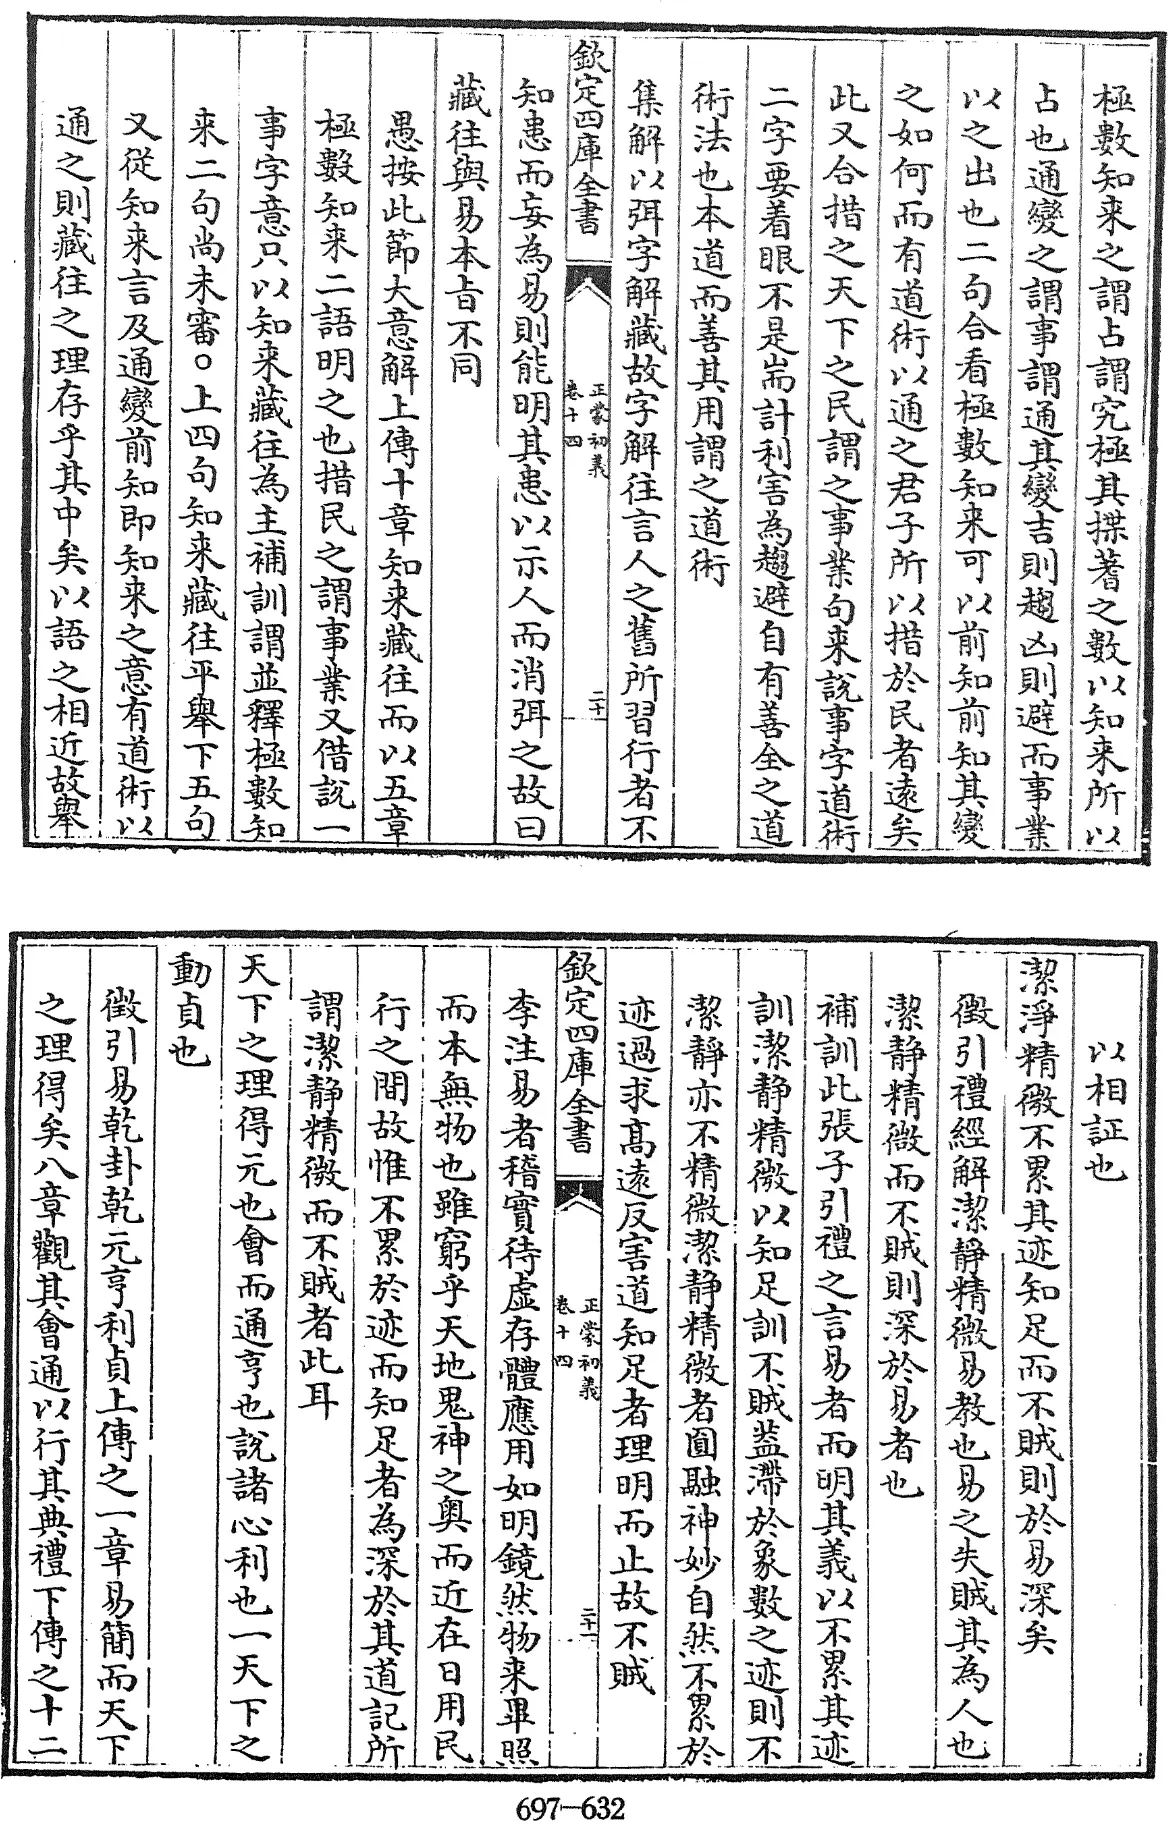 極數知来之謂占謂究極其揲蓍之數以知来所以
占也通變之謂事謂通其變吉則趨凶則避而事業
以之出也二句合看極數知来可以前知前知其變
之如何而有道術以通之君子所以措於民者遠矣
此又合措之天下之民謂之事業句来說事字道術
二字要着眼不是耑計利害為趨避自有善全之道
術法也本道而善其用謂之道術
集解以弭字解藏故字解往言人之舊所習行者不
欽定四庫全書
正蒙初義
卷十四
二十
知患而妄為易則能明其患以示人而消弭之故曰
藏往與易本旨不同
愚按此節大意解上傳十章知来藏往而以五章
極數知来二語明之也措民之謂事業又借說一
事字意只以知来藏往為主補訓謂並釋極數知
来二句尚未審○上四句知来藏往平舉下五句
又從知来言及通變前知即知来之意有道術以
通之則藏往之理存乎其中矣以語之相近故舉
以相証也
潔淨精微不累其迹知足而不賊則於易深矣
徵引禮經解潔靜精微易教也易之失賊其為人也
潔静精微而不賊則深於易者也
補訓此張子引禮之言易者而明其義以不累其迹
訓潔静精微以知足訓不賊蓋滯於象數之迹則不
潔静亦不精微潔静精微者圓融神妙自然不累於
迹過求高遠反害道知足者理明而止故不賊
欽定四庫全書
正蒙初義
卷十四
二十一
李注易者稽實待虚存體應用如明鏡然物来畢照
而本無物也雖窮乎天地鬼神之奥而近在日用民
行之間故惟不累於迹而知足者為深於其道記所
謂潔静精微而不賊者此耳
天下之理得元也會而通亨也說諸心利也一天下之
動貞也
徵引易乾卦乾元亨利貞上傳之一章易簡而天下
之理得矣八章觀其會通以行其典禮下傳之十二
697-632